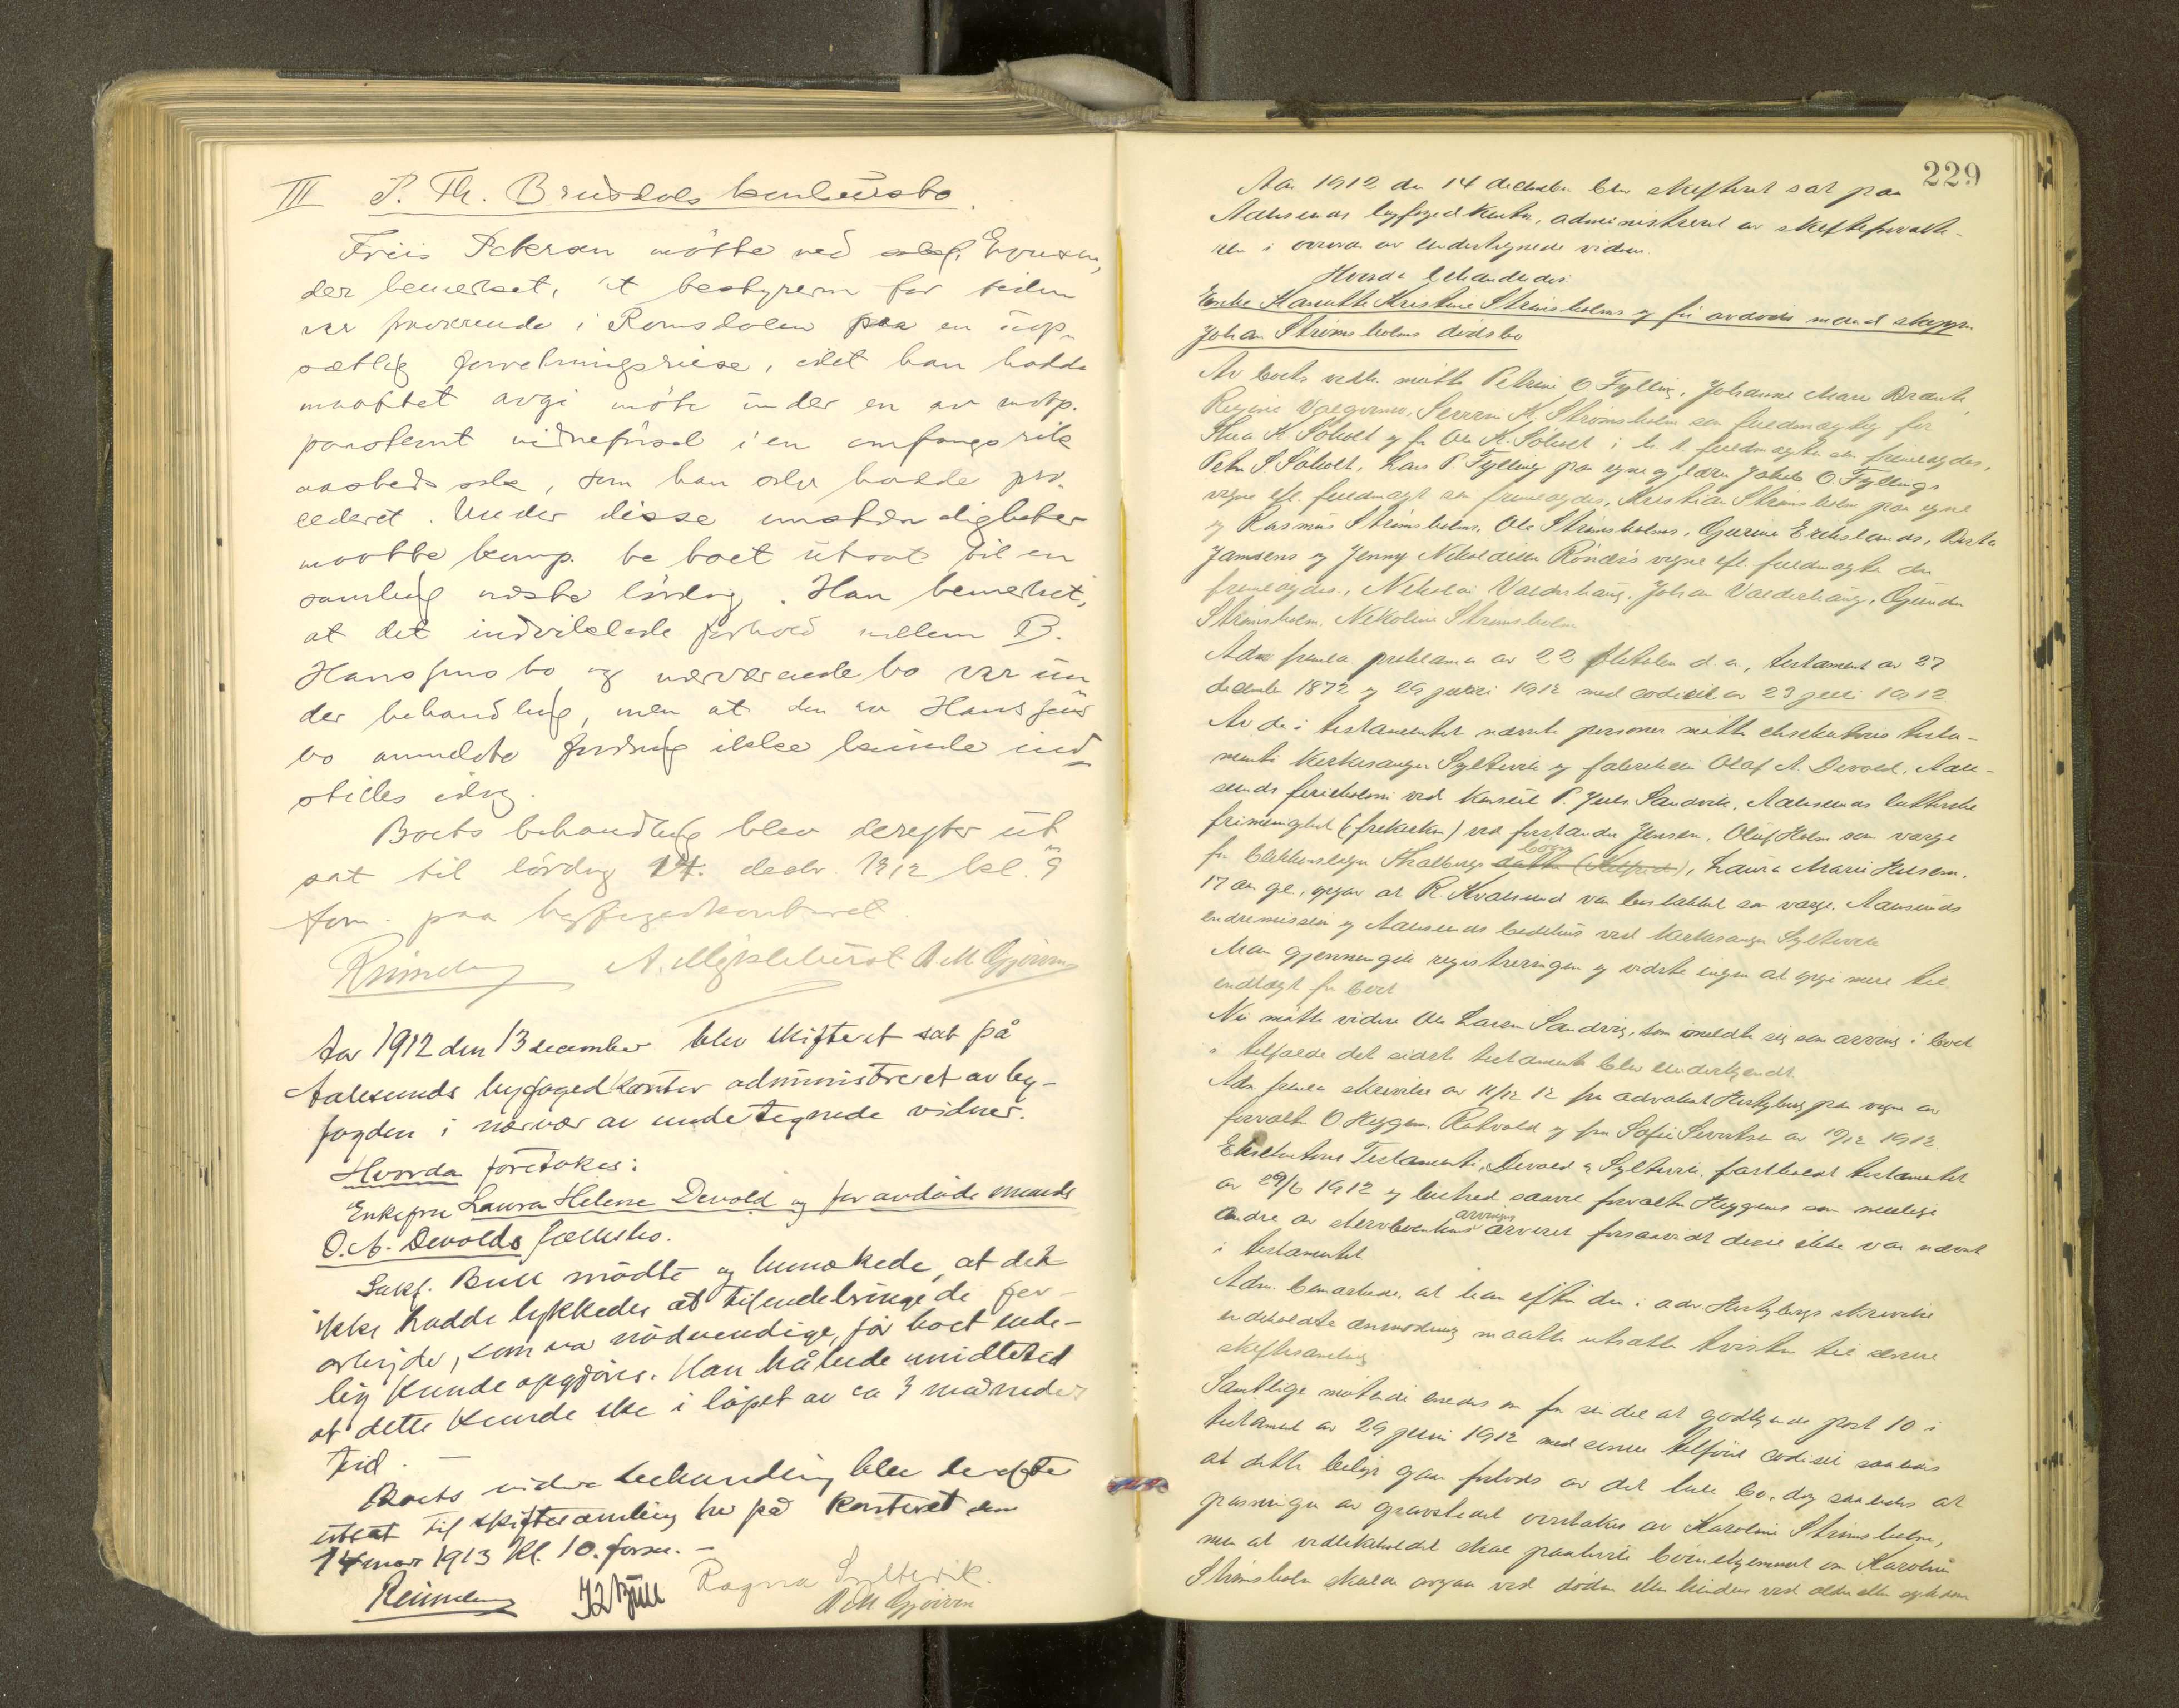 III P. Th. Brusdals konkursbo.
Friis Petersen mötte ved sakf.
der bemerket, at bestyreren for tiden
var fraværende i Romsdalen paa en uop-
sættelig forretningsreise, idet han hadde
maattet avgi möte under en av motp.
paastevnt vidneförsel i en omfangsrik
aastedssak, som han selv hadde pro-
cederet. Under disse omstændigheter
maatte komp. be boet utsat til en
samling næste lördag. Han bemerket,
at det indviklede forhold mellem B.
Hansjens bo og nærværende bo var un
der behandling, men at den av Hansjens
bo anmeldte fordring ikke kunde ind-
stilles idag.
Boets behandling blev derefter ut
sat til lördag 14. decbr. 1912 kl. 9
form. paa byfogedkontoret.
A. Myklebust O M Gjörven
Aar 1912 den 13 december blev skifteret sat på
Aalesunds byfogedkontor administreret av by-
fogden i nærvær av undertegnede vidner.
Hvorda foretokes:
Enkefru Laura Helene Devold og før avdöde mands
O. A. Devolds fællesbo.
Sakf. Bull mödte og bemærkede, at det
ikke hadde lykkedes at tilendebringe de for-
arbejder, som var nödvendige, för boet ende-
lig kunde opgjöres. Han håbede imidlertid
at dette kunde ske i löpet av ca 3 måneder
tid. —
Boets videre behandling blev derefter
utsat til skiftesamling her på kontoret den
14 mars 1913 kl. 10. form. —
Ragna Sylterik.
O M Gjörven
229
Aar 1912 den 14 december blev skifteret sat paa
Aalesunds byfogedkontor, administreret av skifteforvalte-
ren i overvær av undertegnede vidner.
Hvorda behandledes:
Enke Karnthe Kristine Strömsholms og för avdöde mand skipper
Johan Strömsholms dödsbo
Av boets vedk. mötte Petrine O Fylling, Johanne Marie Brænde,
Regine Valgermo, Severin K. Strömsholm som fuldmægtig for
Thea K Söholt og for Ole K. Söholt i h. t. fuldmagter som fremlagdes,
Peter S. Söholt, Lars P. Fylling paa egne og lærer Jakob O Fyllings
vegne efl. fuldmagt som fremlagdes, Kristian Strömsholm paa egne
og Rasmus Strömsholms, Ole Strömsholms, Gjurine Erikslands, Berte
Jamsens og Jenny Nikoldine Rondös vegne efl. fuldmagter der
fremlagdes, Nikolai Valderhaug, Johan Valderhaug, Gunder
Strömsholm, Nikoline Strömsholm
Adm fremla proklama av 22 oktober d. a., testament av 27
december 1872 og 29 juni 1912 med codicil av 23 juli 1912
Av de i testamentet nævnte personer mötte eksekutores testa-
menti kirkesanger Sylterik og fabrikeier Olaf A. Devold, Aale-
sunds ved konsul P. Juls Sandvik, Aalesunds lutherske
frimenighet (frikirken) ved forstander Jensen, Oluf Holm som værge
for blikkenslager Skalbergs barn datter, Laura Marie Helsem,
17 aar gl., opgav at R. Kvalsund var beskikket som værge. Aalesunds
indremission og Aalesunds bedehus ved kirkesanger Sylterik
Man gjennemgik registreringen og vidste ingen at opgi mere til
indtægt for boet
Nu mötte videre Ole Larsen Sandvig, som meldte sig som arving i boet
i tilfælde det sidste testamente blev underkjendt.
Adm. fremla skrivelse av 11/12 12 fra advokat Hertzberg paa vegne av
forvalter O Heggem, Røtvold og fra Sofie Sivertsen av 1912
Eksekutores Testamenti, Devold & Sylterik, fastholdt testamentet
av 29/6 1912 og bestred saavel forvalter Heggems som mulige
andre av sterbboenkens arvinger arveret forsaavidt disse ikke var nævnt
i testamentet
Adm. bemærkede, at han efter den i adv. Hertzbergs skrivelse
indeholdte anmodning maatte utsætte tvisten til senere
skiftesamling
Samtlige mötende enedes om for sin del at godkjende post 10 i
testament av 29 juni 1912 med senere tilföiet codicil saaledes
at dette belöp gaar forlods av det hele bo, dog saaledes at
pasningen av gravstedet overtakes av Karoline Strömsholm,
men at vedlikeholdet skal paahvile börnehjemmet om Karoline
Strömsholm skulde avgaa ved döden eller hindres ved alder eller sykdom